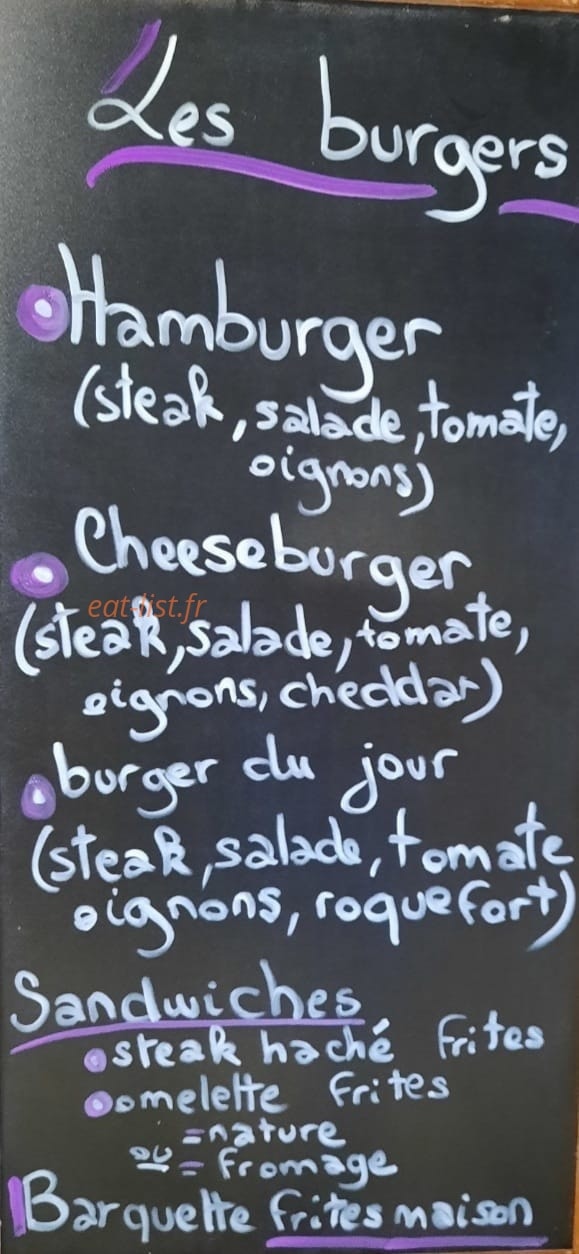 Les burgers
Hamburger
(steak, salade, tomate,
oignons)
Cheeseburger
eat-list.fr
(steak, salade, tomate,
oignons, cheddar)
burger du jour
(steak, salade, tomate
oignons, roquefort)
Sandwiches
steak haché frites
omelette frites
=nature
ou = fromage
Barquette frites maison